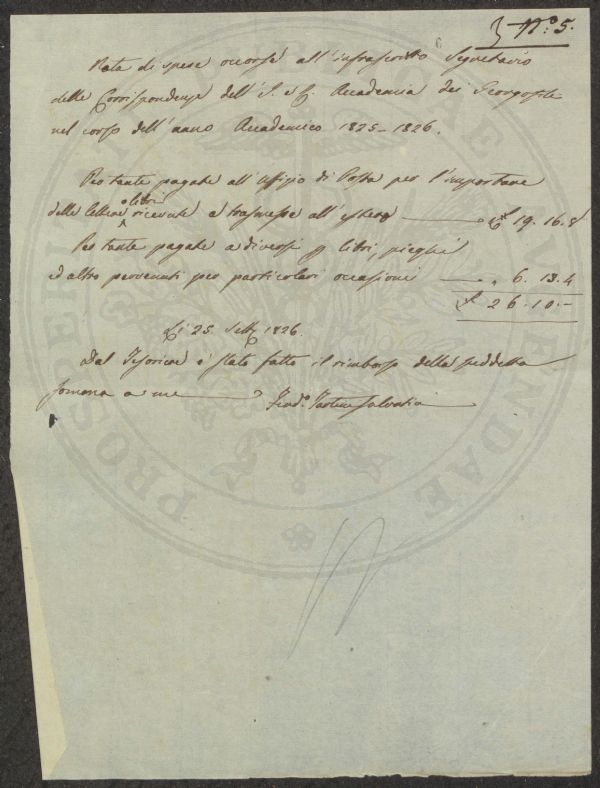 N.o 5.
Nota di spese occorse all'infrascritto Segretario
delle Corrispondenze dell'I. e R. Accademia dei Georgofili
nel corso dell'anno Accademico 1825-1826.
Per tante pagate all'Uffizio di Posta per l'importare
delle lettere e libri ricevute e trasmesse all'estero £ 19.16.8
Per tante pagate a diversi p libri, pieghi
ed altro pervenuti per particolari occasioni " 6.13.4
£ 26.10.-
Li 25. Sett. 1826.
Dal Tesoriere è stato fatto il rimborso della suddetta
somma a me Ferd.o Tartini Salvatici
PROSPERITATI AUGENDAE